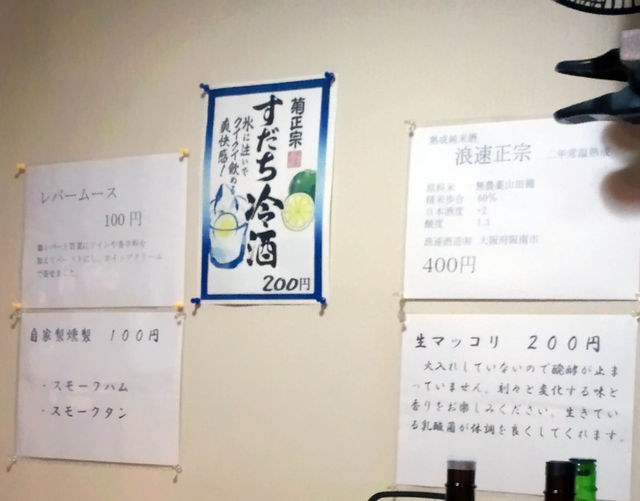 レバームース
100円
鶏レバーと野菜にワインや香辛料を
加えてペーストにし、ホイップクリーム
で寄せました。
自家製燻製 100円
・スモークハム
・スモークタン
菊正宗
すだち冷酒
氷に注いで
クイクイ飲める
爽快感!
200円
熟成純米酒
浪速正宗 二年常温熟成
原料米 無農薬山田錦
精米歩合 60%
日本酒度 -2
酸度 1.3
浪速酒造㈲ 大阪府阪南市
400円
生マッコリ 200円
火入れしていないので醗酵が止ま
っていません。刻々と変化する味と
香りをお楽しみください。生きてい
る乳酸菌が体調を良くしてくれます。